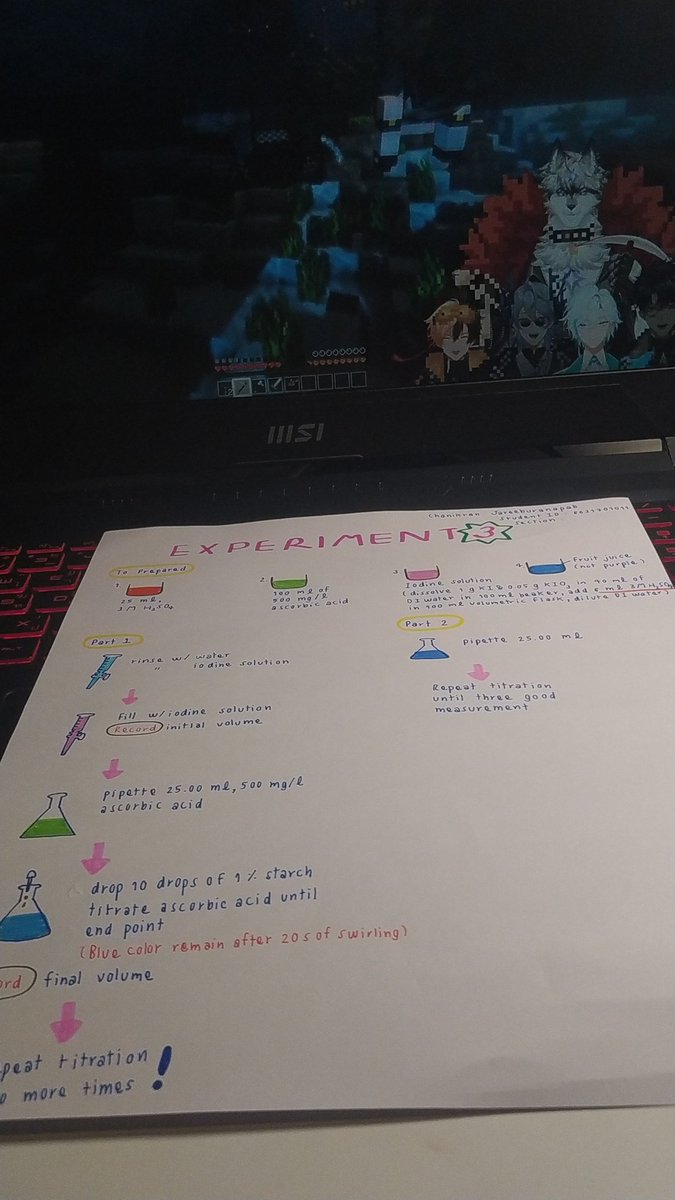 msi
EXPERIMENT 3
Student ID
Section
To Prepared
1.
25 ml,
3M H2SO4
2.
100 ml of
500 mg/l
ascorbic acid
3.
Iodine solution
(dissolve 1 g KI & 0.05 g KIO3 in 40 ml of
DI water in 100 ml beaker, add 5 ml 3M H2SO4
in 100 ml volumetric flask, dilute DI water)
4.
Fruit juice
(not purple)
Part 1
rinse w/ water
" iodine solution
Fill w/iodine solution
Record initial volume
pipette 25.00 ml, 500 mg/l
ascorbic acid
drop 10 drops of 1% starch
titrate ascorbic acid until
end point
(Blue color remain after 20s of swirling)
ord final volume
peat titration
o more times !
Part 2
pipette 25.00 ml
Repeat titration
until three good
measurement